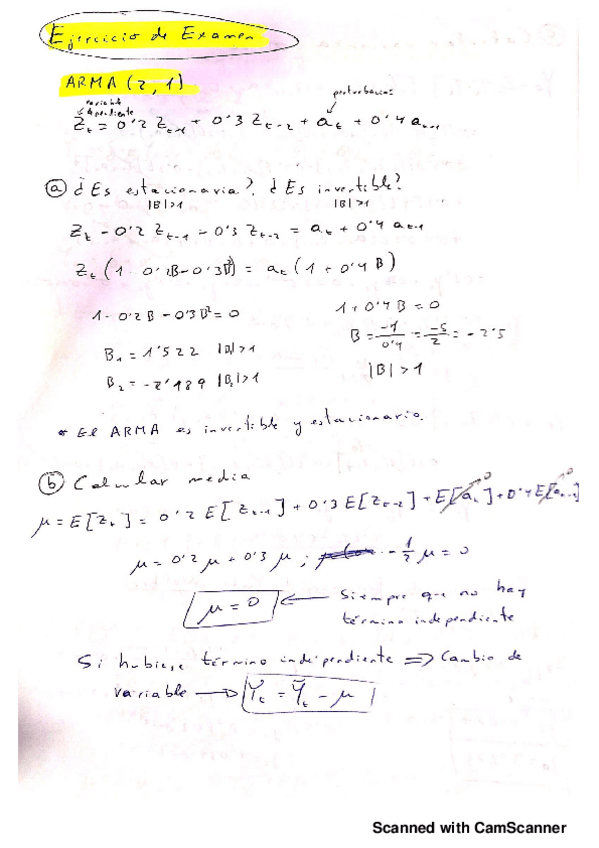 Ejercicio de Examen
ARMA (2,1)
variable dependiente
perturbación
Z_t = 0'2 Z_{t-1} + 0'3 Z_{t-2} + a_t + 0'4 a_{t-1}
ⓐ ¿Es estacionaria?, ¿Es invertible?
|B|>1 |B|>1
Z_t - 0'2 Z_{t-1} - 0'3 Z_{t-2} = a_t + 0'4 a_{t-1}
Z_t (1 - 0'2B - 0'3B²) = a_t (1 + 0'4 B)
1 - 0'2 B - 0'3 B² = 0
1 + 0'4 B = 0
B = -1/0'4 = -5/2 = -2'5
B₁ = 1'522 |B|>1
B₂ = -2'189 |B|>1
|B| > 1
* El ARMA es invertible y estacionario.
ⓑ Calcular media
μ = E[Z_t] = 0'2 E[Z_{t-1}] + 0'3 E[Z_{t-2}] + E[a_t] + 0'4 E[a_{t-1}]
0 0
μ = 0'2 μ + 0'3 μ ; - 1/2 μ = 0
μ = 0 ← Siempre que no hay
término independiente
Si hubiese término independiente ⇒ Cambio de
variable → Ỹ_t = Ȳ_t - μ
Scanned with CamScanner